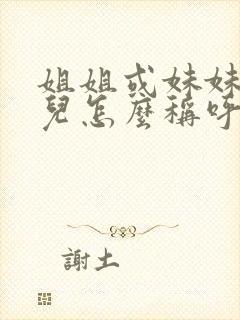 姐姐或妹妹
兒怎麼稱呼
謝土